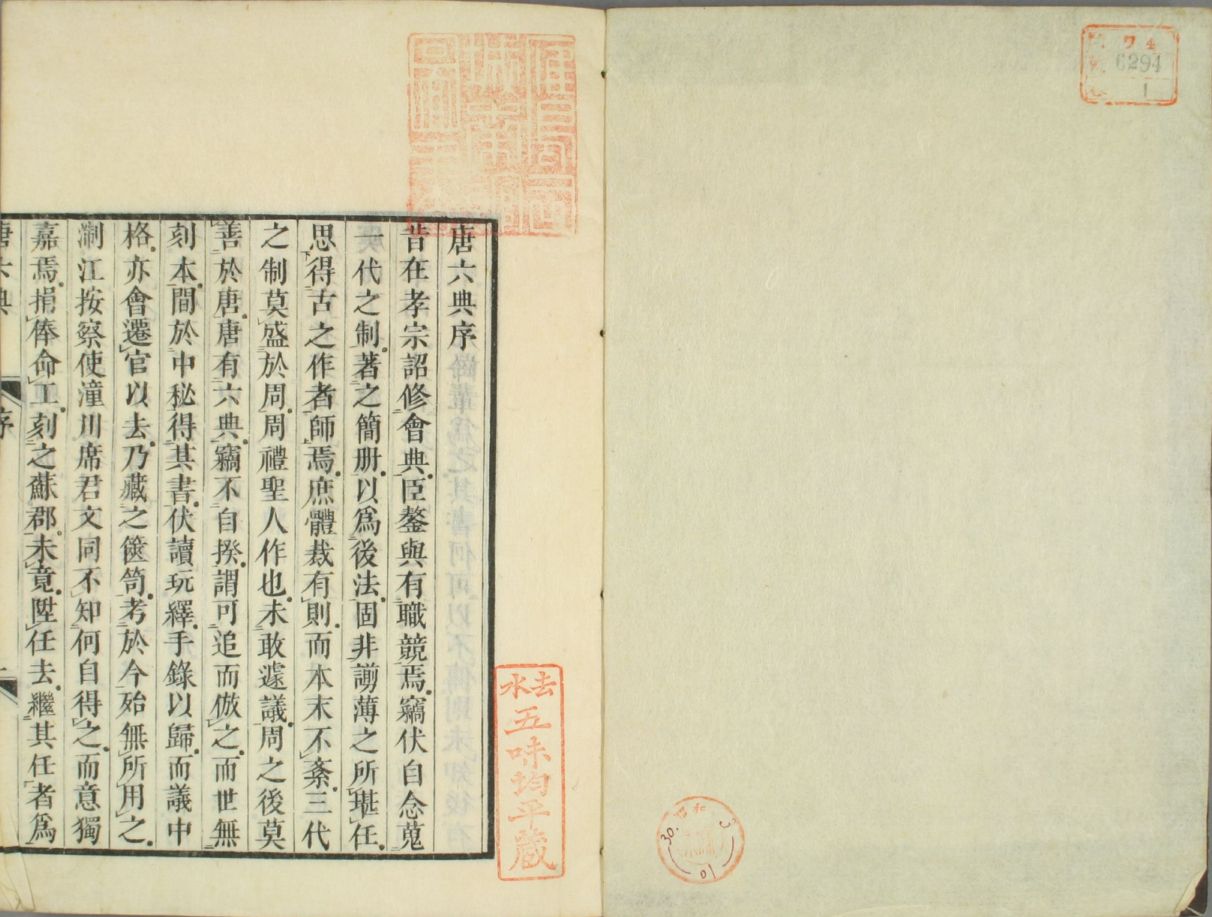 ワ4
6294
1
唐六典序
昔在孝宗詔修會典臣鏊與有職競焉竊伏自念蒐
一代之制著之簡册以爲後法固非謭薄之所堪任
思得古之作者師焉庶體裁有則而本末不紊三代
之制莫盛於周周禮聖人作也未敢遽議周之後莫
善於唐唐有六典竊不自揆謂可追而倣之而世無
刻本間於中秘得其書伏讀玩繹手錄以歸而議中
格亦會遷官以去乃藏之篋笥考於今殆無所用之
淛江按察使潼川席君文同不知何自得之而意獨
嘉焉捐俸命工刻之蘇郡未竟陞任去繼其任者爲
唐六典
序
一
去水
五味均平蔵